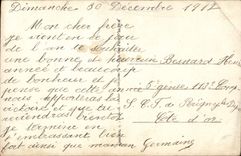 Dimanche 30 Décembre 1917
Mon cher frère
je vient en ce jour
de l'an te souhaiter
une bonne et heureuse
année et beaucoup
de bonheur je
pense que cette année
nous apportera la
victoire et que tu
reviendras bientôt
je termine en
t'embrassant bien
fort ainsi que maman Germaine
Besnard
5e génie
Côte d'or